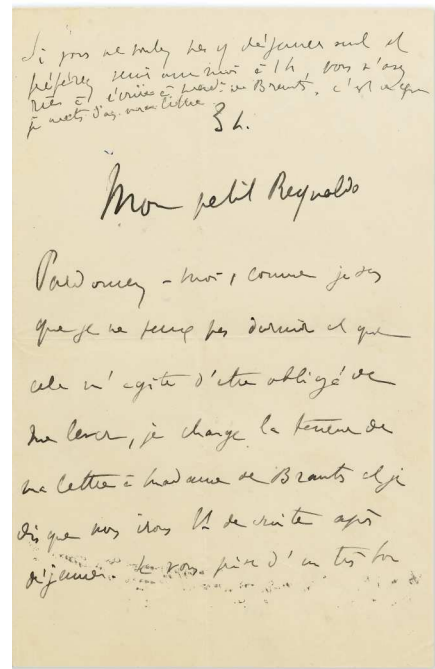 Si vous ne voulez pas y déjeuner seul et
préférez venir avec moi à 1 h, vous n'avez
rien à écrire à Mad. de Brants, c'est ce que
je mets dans ma lettre
3 h.
Mon petit Reynaldo
Pardonnez-moi, comme je sens
que je ne peux pas dormir et que
cela m'agite d'être obligé de
me lever, je change la teneur de
ma lettre à Madame de Brants et je
dis que nous irons de suite après
déjeuner. Je vous d'un très bon